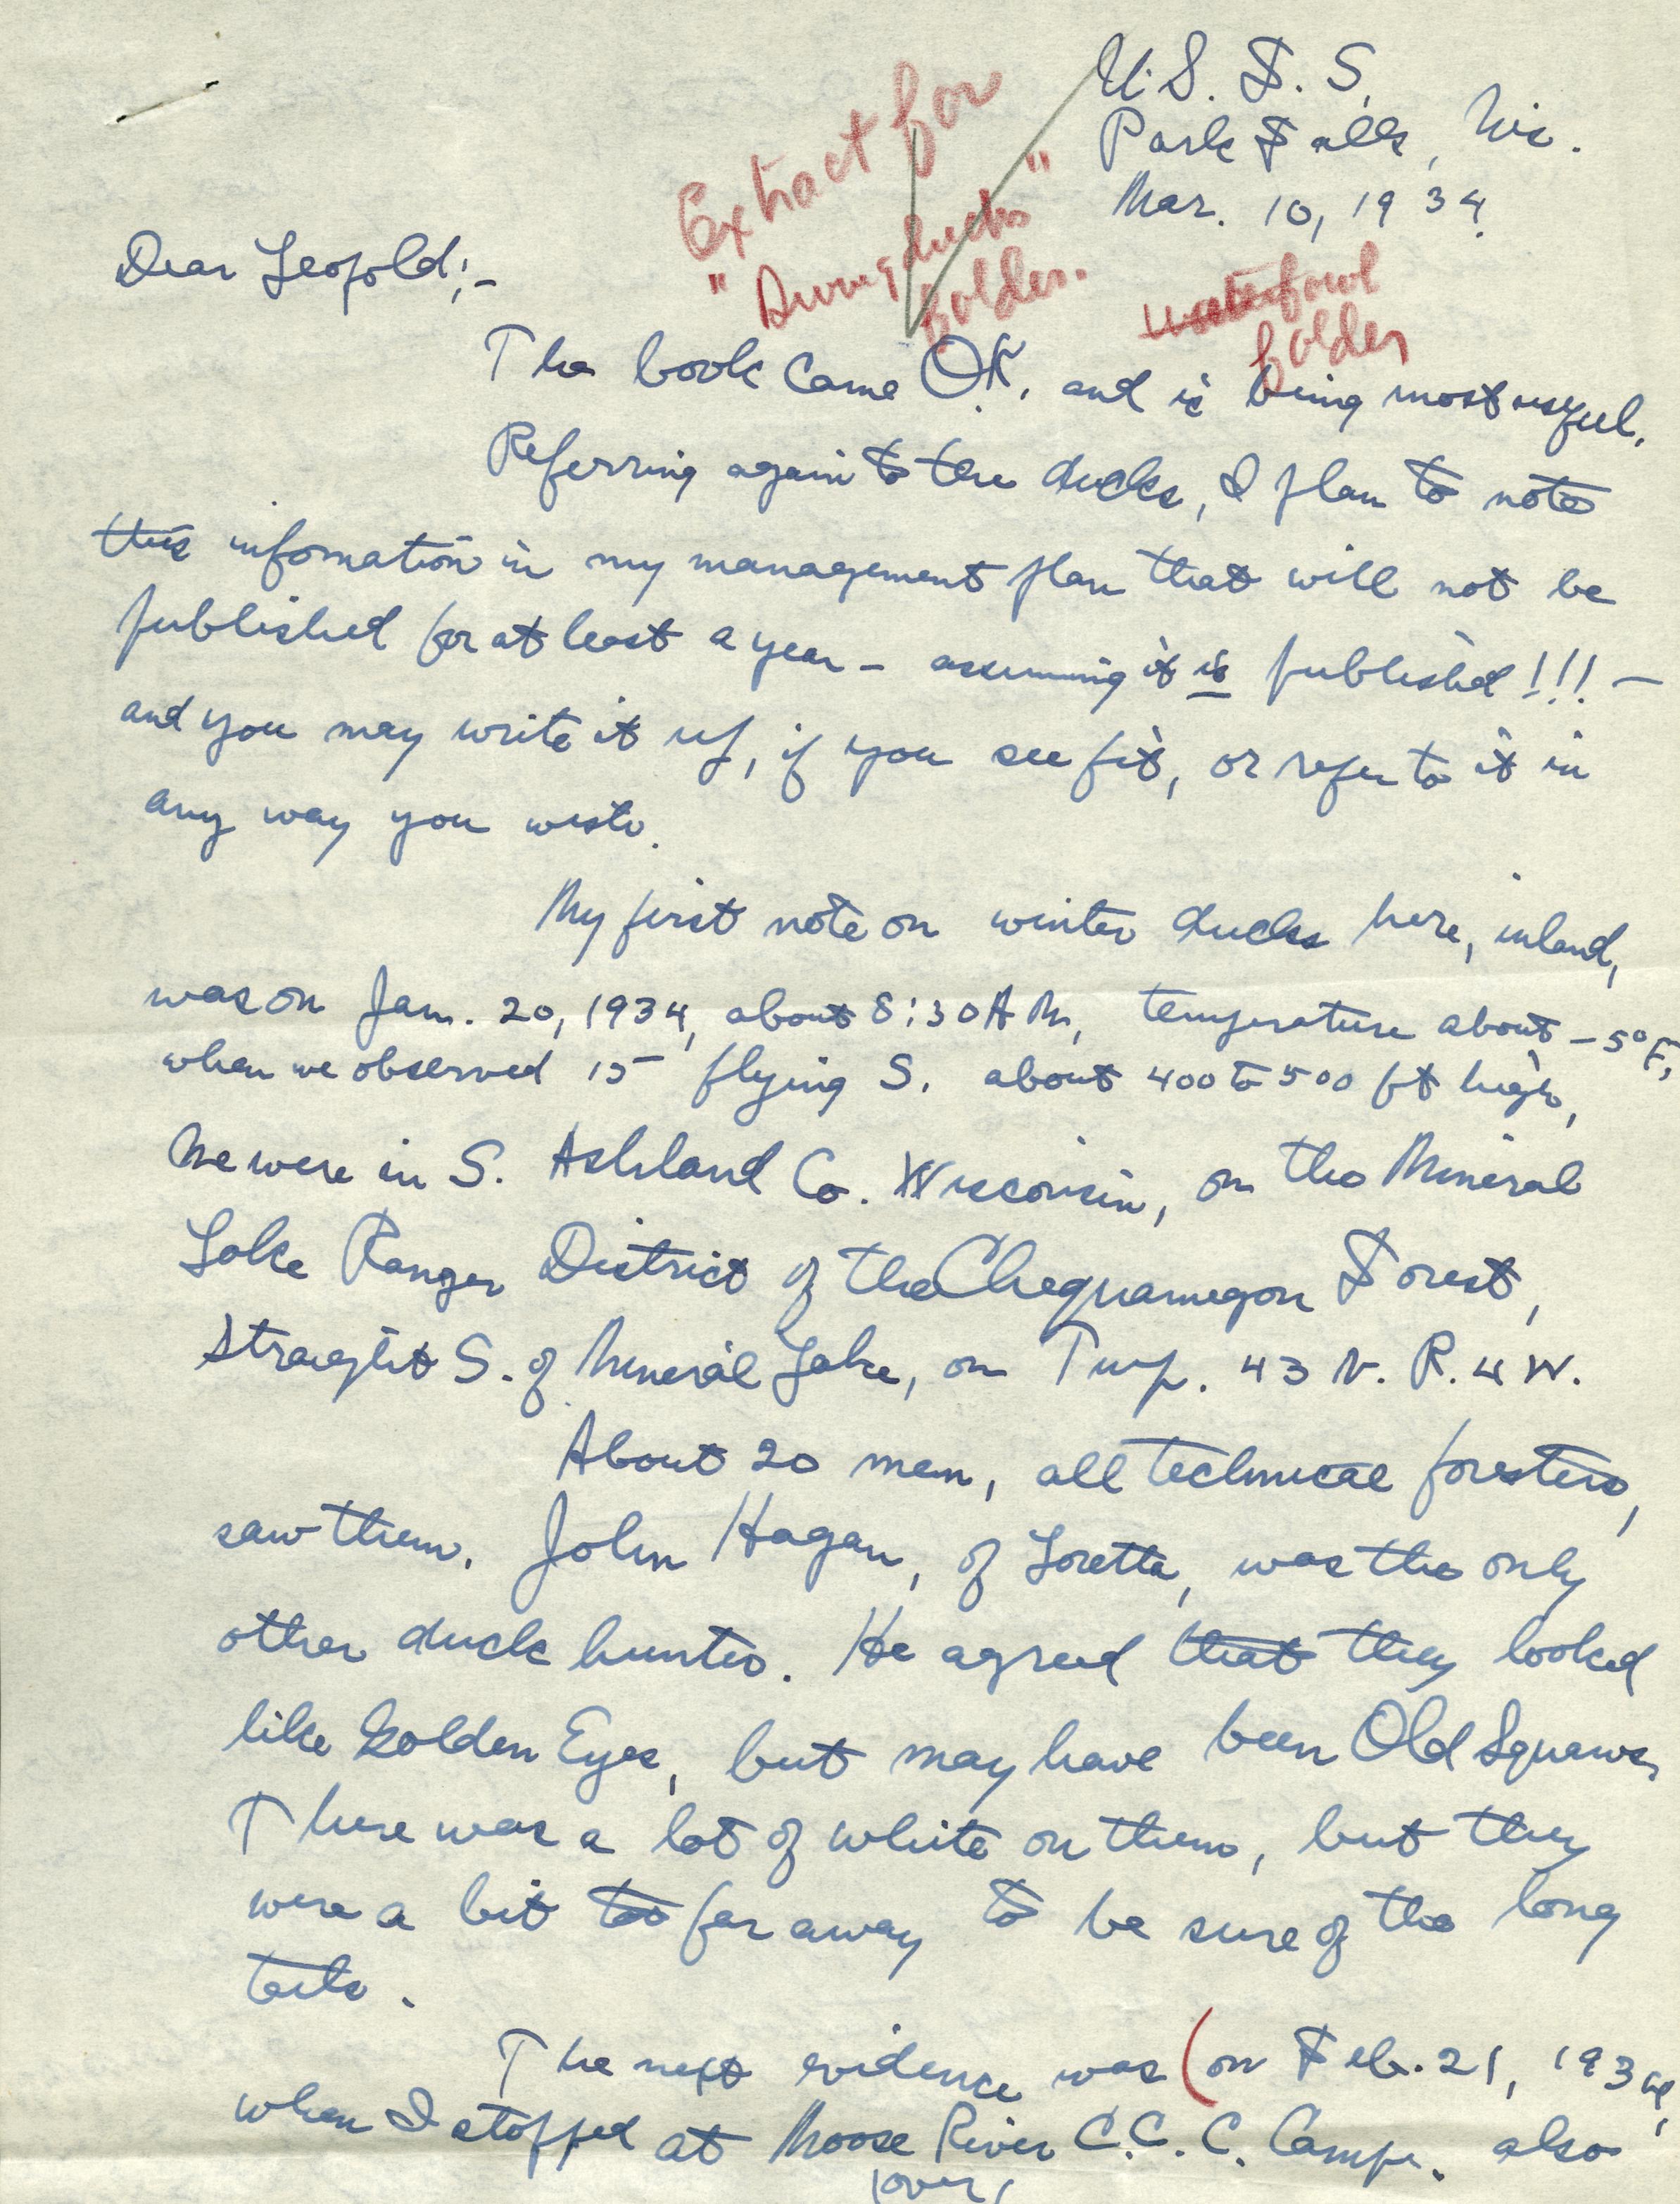 U.S.F.S.
Park Falls, Wis.
Mar. 10, 1934.
Extract for
" ducks"
folder.
waterfowl
folder
Dear Leopold;-
The book came O.K. and is being most useful.
Referring again to the ducks, I plan to note
this infomation in my management plan that will not be
published for at least a year - assuming it is published!!! -
and you may write it up, if you see fit, or refer to it in
any way you wish.
My first note on winter ducks here, inland,
was on Jan. 20, 1934, about 8:30 A M, temperature about -5°F,
when we observed 15 flying S. about 400 to 500 ft high,
We were in S. Ashland Co. Wisconsin, on the Mineral
Lake Ranger District of the Chequamegon Forest,
straight S. of Mineral Lake, on Twp. 43 N. R. 4 W.
About 20 men, all technical foresters,
saw them. John Hagan, of Loretta, was the only
other duck hunter. He agreed that they looked
like Golden Eyes, but may have been Old Squaws,
There was a lot of white on them, but they
were a bit too far away to be sure of the long
tails.
The next evidence was (on Feb. 21, 1934,
when I stopped at Moose River C.C.C. Camp. also
(over)